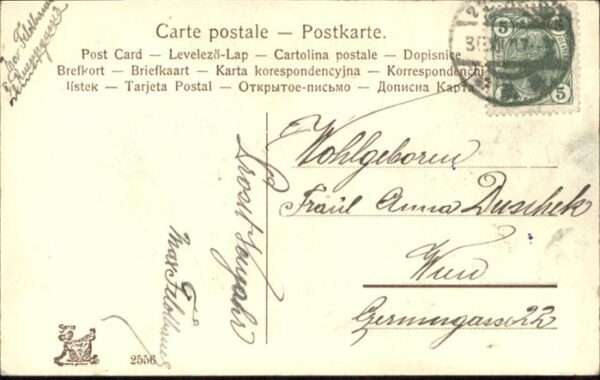 Carte postale – Postkarte.
Post Card – Levelező-Lap – Cartolina postale – Dopisnice
Brefkort – Briefkaart – Karta korespondencyjna – Korrespondenčni
lístek – Tarjeta Postal – Открытое-письмо – Дописна Карта
5
5 5
Wohlgeboren
Fräul Anna Duschek
Wien
Germergasse 22
Prosit Neujahr
Max Feldhaus
2556